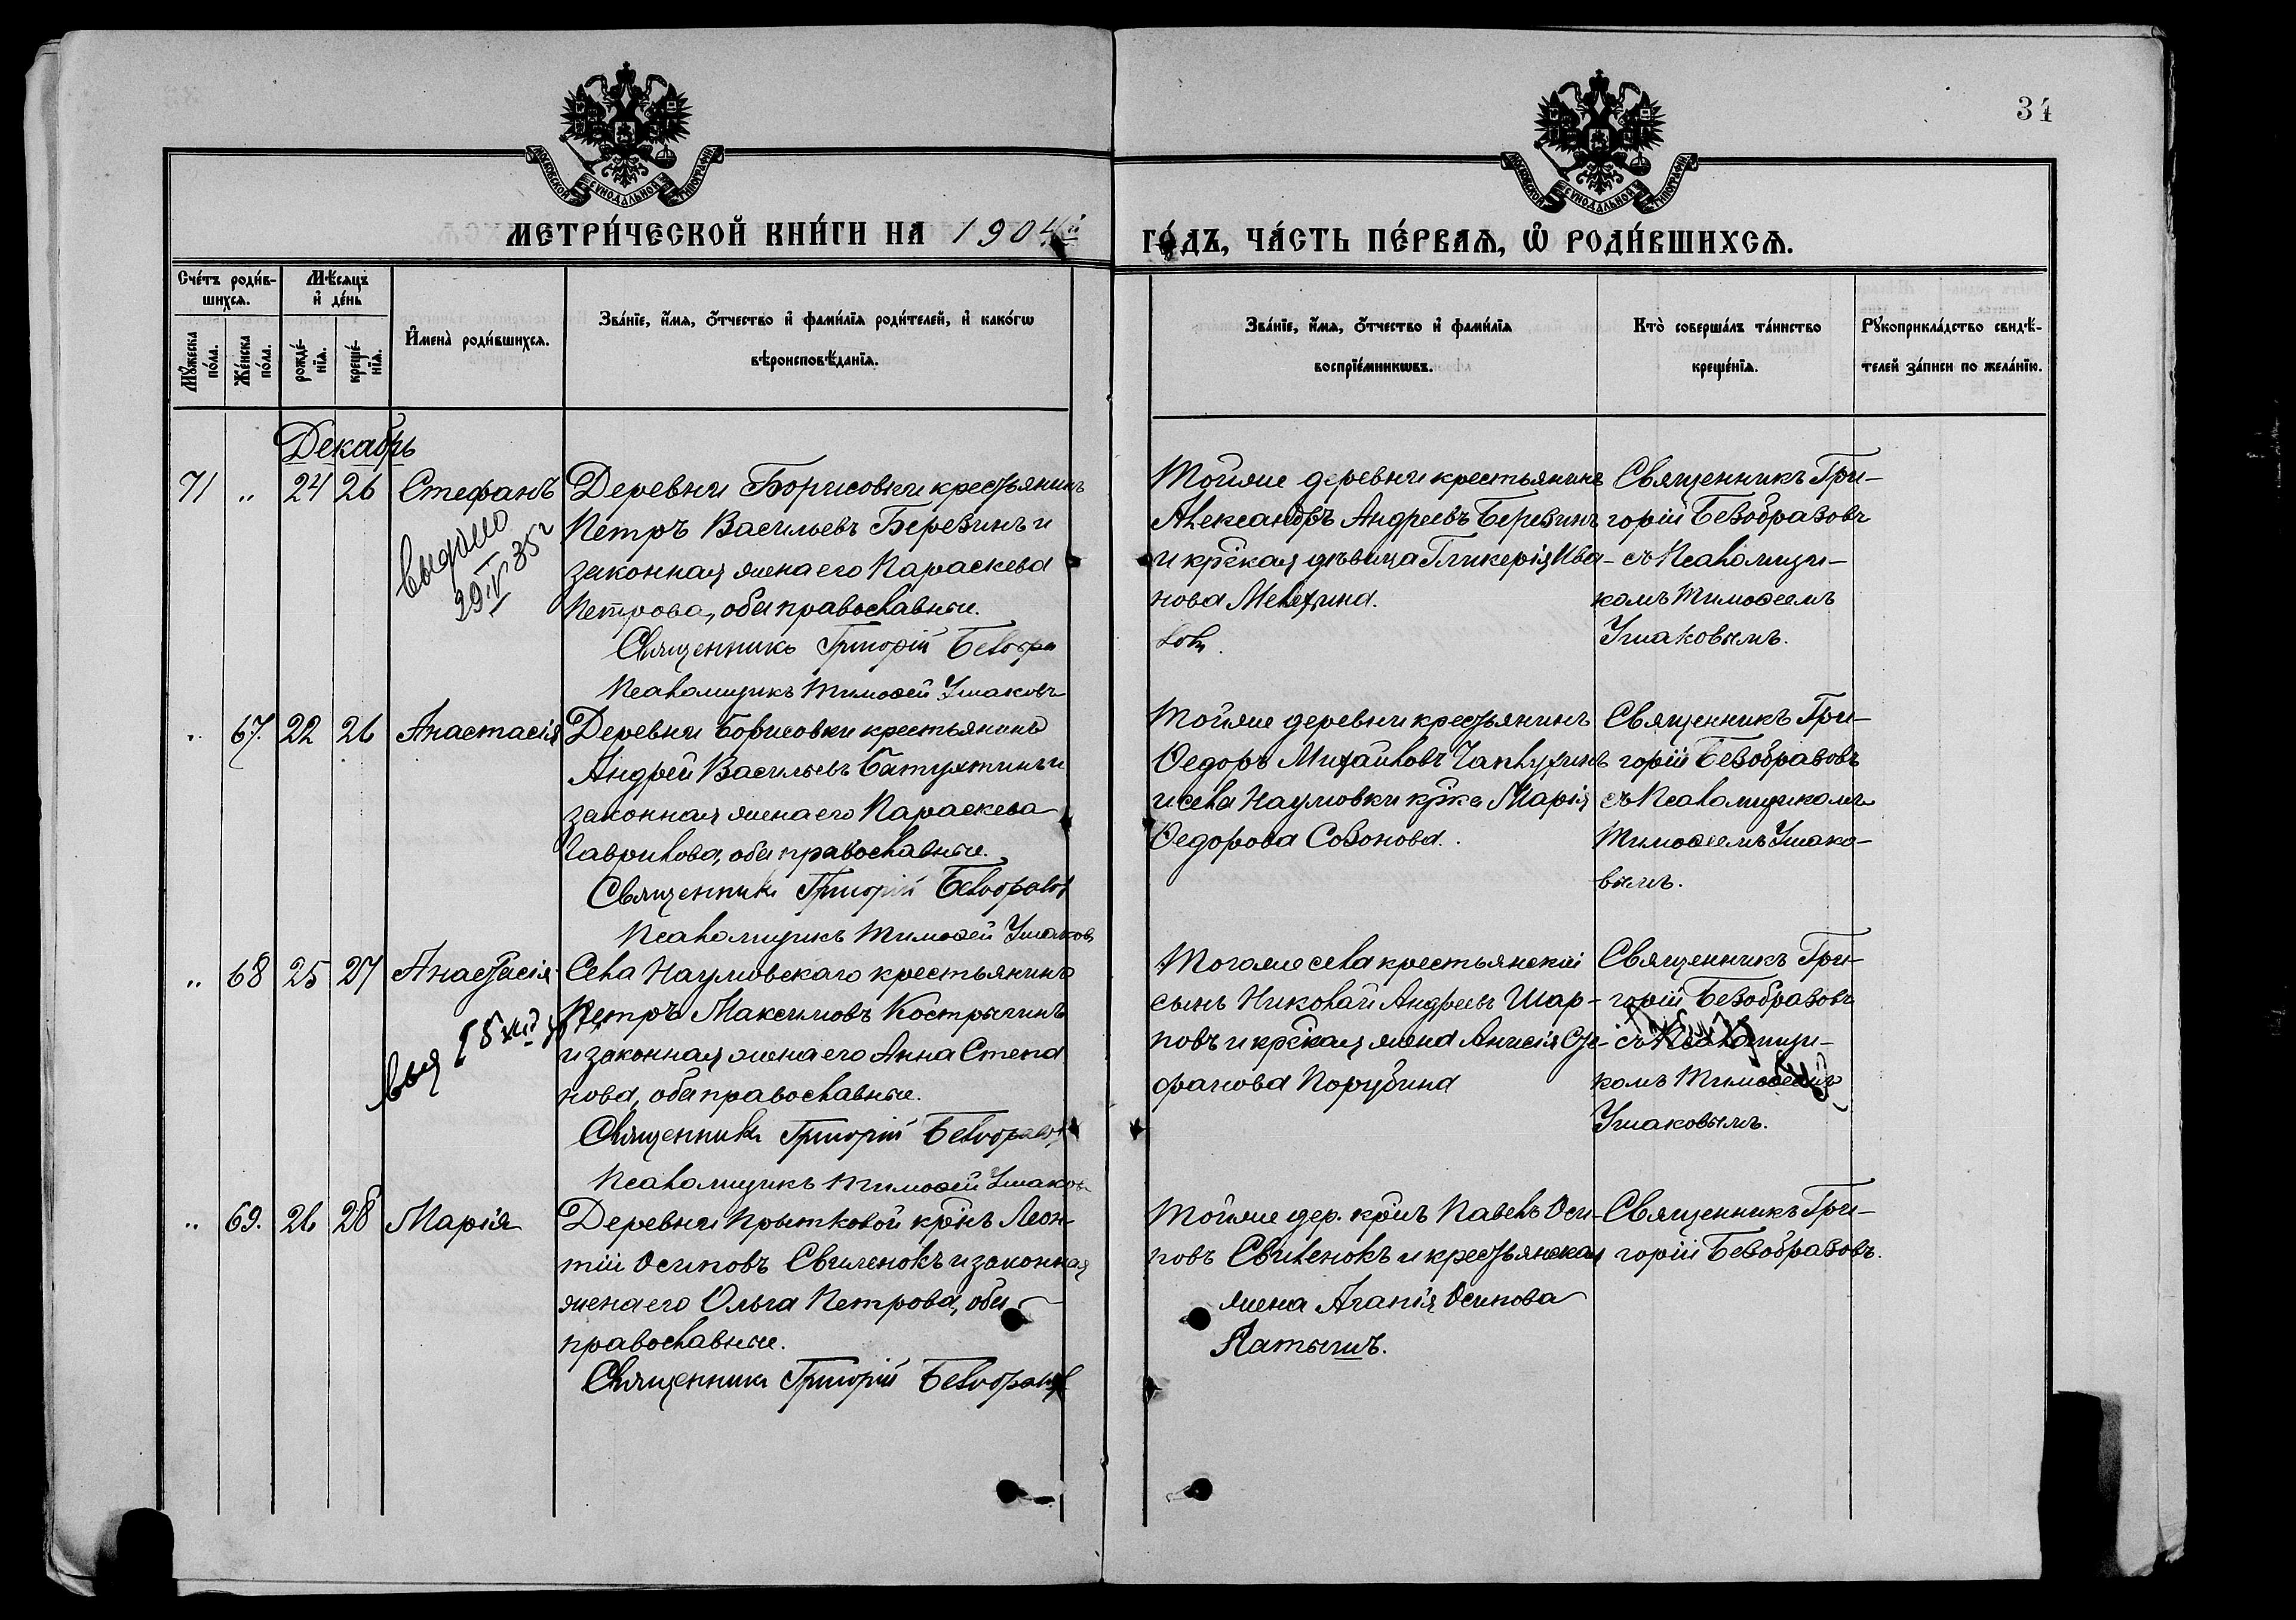 34
МОСКОВСКОЙ СУНОДАЛЬНОЙ ТИПОГРАФІИ
МОСКОВСКОЙ СУНОДАЛЬНОЙ ТИПОГРАФІИ
МЕТРИ́ЧЕСКОЙ КНИ́ГИ НА 1904й
ГО́ДЪ, ЧА́СТЬ ПЕ́РВАЯ, Ѡ РОДИ́ВШИХСЯ.
Сче́тъ роди́в-
шихся.
Мѣсяцъ
и де́нь
Му́жеска
по́ла.
Же́нска
по́ла.
рожде́-
нія.
креще́-
нія.
Имена̀ роди́вшихся.
Зва́ніе, и́мя, о́тчество и фами́лія роди́телей, и како́гѡ
вѣроисповѣ́данія.
Зва́ніе, и́мя, о́тчество и фами́лія
воспріе́мникѡвъ.
Кто̀ соверша́лъ та́инство
креще́нія.
Рꙋкоприкла́дство свидѣ́-
телей за́писи по жела́нію.
Декабрь
71 „ 24 26 Стефанъ
выдано
29 IV 35 г
Деревни Борисовки крестьянинъ
Петръ Васильевъ Березинъ и
законная жена его Параскева
Петрова, оба православные.
Священникъ Григорій
Псаломщикъ Тимоѳей Ушаковъ
Тойже деревни крестьянинъ
Александръ Андреевъ Березинъ
и кр̃ская дѣвица Гликерія Ива-
нова Мелехина.
Священникъ Гри-
горій Безобразовъ
съ Псаломщи-
комъ Тимоѳеемъ
Ушаковымъ.
„ 67. 22 26 Анастасія
Деревни Борисовки крестьянинъ
Андрей Васильевъ Батухтинъ и
законная жена его Параскева
Гаврилова, оба православные.
Священникъ Григорій Безобразовъ
Псаломщикъ Тимоѳей Ушаковъ
Тойже деревни крестьянинъ
Ѳедоръ Михайловъ Чаплухинъ
и села Наумовки кр̃ка Марія
Ѳедорова Созонова.
Священникъ Гри-
горій Безобразовъ
съ Псаломщикомъ
Тимоѳеемъ Ушако-
вымъ.
„ 68 25 27 Анастасія
Села Наумовскаго крестьянинъ
Петръ Максимовъ Кострыгинъ
и законная жена его Анна Степа
нова, оба православные.
Священникъ Григорій Безобразовъ
Псаломщикъ Тимоѳей Ушаковъ
Тогоже села крестьянскій
сынъ Николай Андреевъ Шар-
повъ и кр̃ская жена Анисія Сте-
фанова Порубина
Священникъ Гри-
горій Безобразовъ
съ Псаломщи-
комъ Тимоѳеемъ
Ушаковымъ.
„ 69. 26 28 Марія
Деревни Прытковой кр̃нъ Леон-
тій Осиповъ Свиленокъ и законная
жена его Ольга Петрова, оба
православные.
Священникъ Григорій Безобразовъ
Тойже дер. кр̃нъ Павелъ Оси-
повъ Свиленокъ и крестьянская
жена Агапія Осипова
Латышъ.
Священникъ Гри-
горій Безобразовъ.